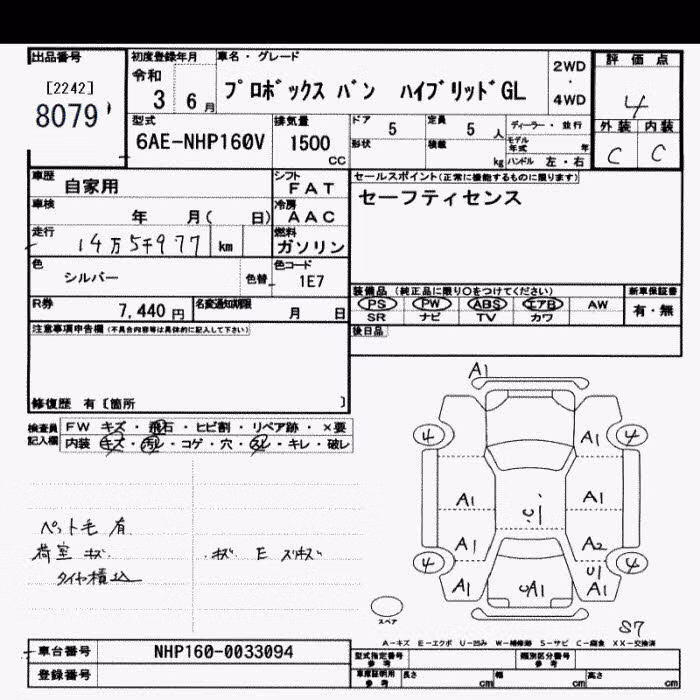 出品番号 初度登録年月 車名・グレード 評価点
[2242]
8079
令和
3 6月
プロボックス バン ハイブリッドGL
2WD
・
4WD
4
外装 内装
C C
型式 排気量 ドア 5 定員 5人 ディーラー・並行
6AE-NHP160V 1500 CC
形状 積載 kg モデル年式 年
ハンドル 左・右
車歴 自家用 シフト FAT
セールスポイント(正常に機能するものに限ります)
セーフティセンス
車検 年 月( 日) 冷房 AAC
走行 14万5千977 km 燃料 ガソリン
色 シルバー 色替 色コード 1E7
装備品 (純正品に限り○をつけてください) 新車保証書
PS PW ABS エアB AW 有・無
SR ナビ TV カワ
R券 7,440円 名変通知期限 月 日
後日品
注意事項申告欄 (不具合内容等は具体的に記入して下さい)
修復歴 有 [箇所 ]
検査員 記入欄
FW キズ・飛石・ヒビ割・リペア跡・×要
内装 キズ・汚レ・コゲ・穴・スレ・キレ・破レ
A1
4 A1 4
A1 A1
A1 A2
4 U1 4
A1 A1 A1
ペット毛 有
荷室 キズ
タイヤ積込
スペア
S7
A-キズ E-エクボ U-凹み W-補修跡 S-サビ C-腐食 XX-交換済
車台番号 NHP160-0033094
登録番号
型式指定番号 参考 類別区分番号 参考
車庫証明用 参考 長さ cm 幅 cm 高さ cm